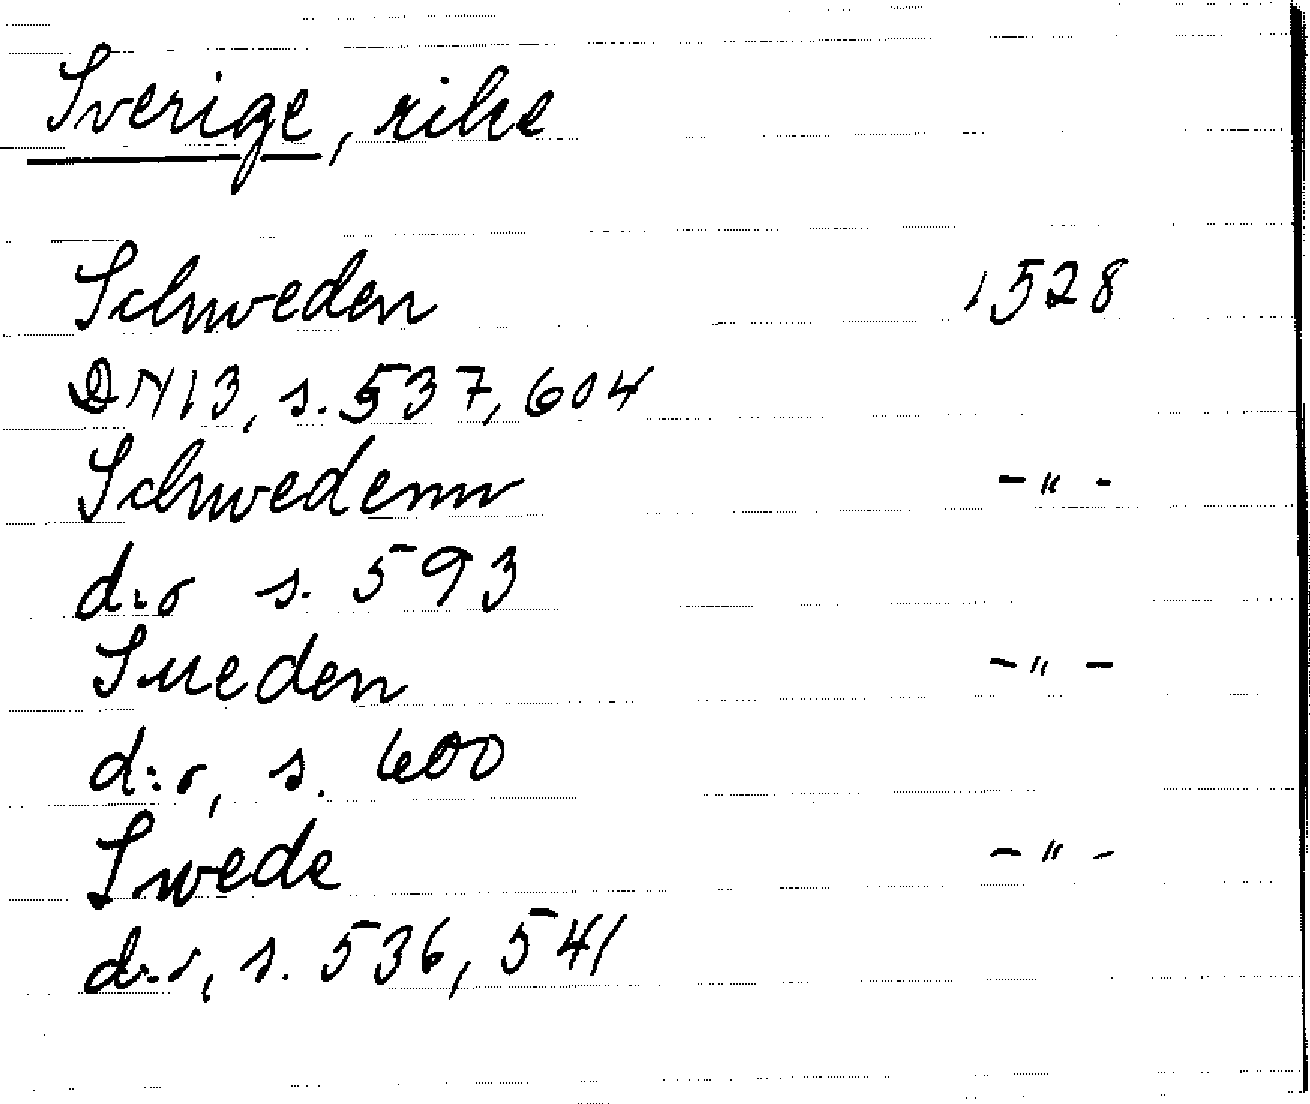 Sverige, rike
Schweden 1528
DN 13, s. 537, 604
Schwedenn -"-
d:o s. 593
Sueden -"-
d:o, s. 600
Swede -"-
d:o, s. 536, 541